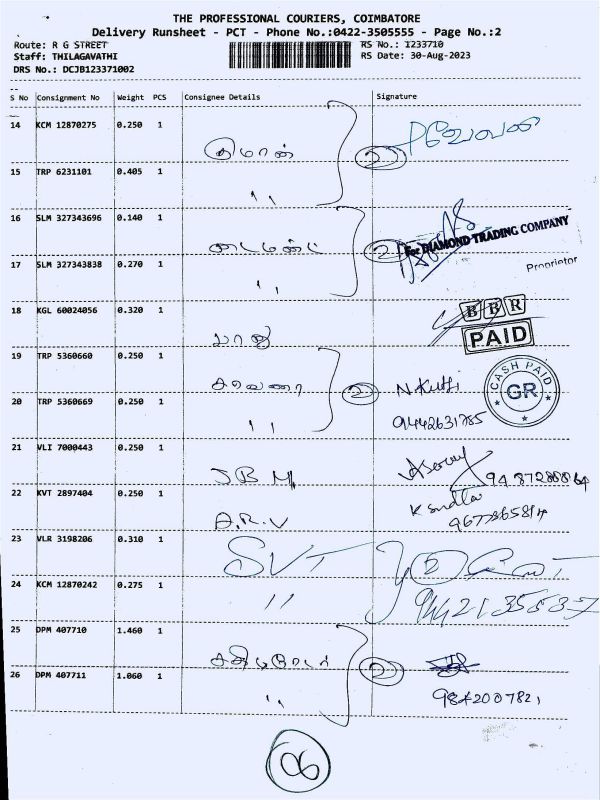 THE PROFESSIONAL COURIERS, COIMBATORE
Delivery Runsheet - PCT - Phone No.:0422-3505555 - Page No.:2
Route: R G STREET RS No.: 1233710
Staff: THILAGAVATHI RS Date: 30-Aug-2023
DRS No.: DCJB123371002
S No Consignment No Weight PCS Consignee Details Signature
14 KCM 12870275 0.250 1
15 TRP 6231101 0.405 1 ,, 2
16 SLM 327343696 0.140 1
For DIAMOND TRADING COMPANY
17 SLM 327343838 0.270 1 ,, 2
Proprietor
18 KGL 60024056 0.320 1 BBR
PAID
19 TRP 5360660 0.250 1 2 CASH PAID
GR
20 TRP 5360669 0.250 1 ,, 9442631785
21 VLI 7000443 0.250 1 JBM
22 KVT 2897404 0.250 1 A.R.V
23 VLR 3198206 0.310 1 SVT 2
24 KCM 12870242 0.275 1 ,,
25 DPM 407710 1.460 1
26 DPM 407711 1.060 1 ,, 2
06